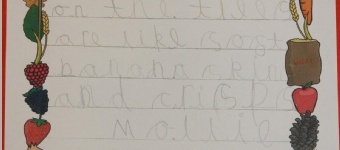 on the tree
are like sost
banana skin
and crisps
Mollie